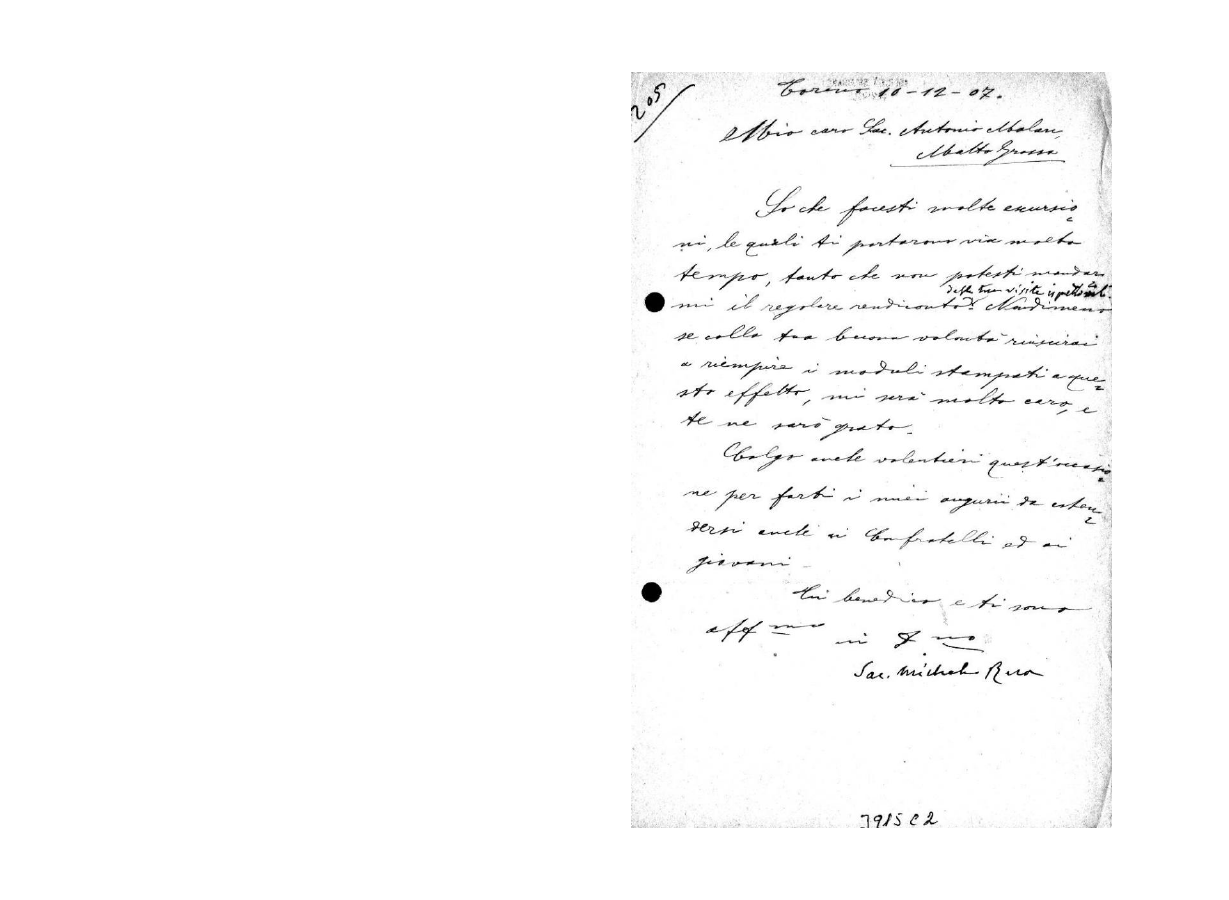 205
Torino 10-12-07.
Mio caro Sac. Antonio Malan,
Matto Grosso
So che facesti molte excursio=
ni, le quali ti portarono via molto
tempo, tanto che non potesti mandar
delle tue visite ispettoriali.
mi il regolare rendiconto. Nondimeno
se colla tua buona volontà riuscirai
a riempire i moduli stampati a que=
sto effetto, mi sarà molto caro, e
te ne sarò grato.
Colgo anche volentieri quest'occasio=
ne per farti i miei augurii da esten=
dersi anche ai Confratelli ed ai
giovani.
Ti benedico e ti sono
aff mo in J mo
Sac. Michele Rua
3915 C2